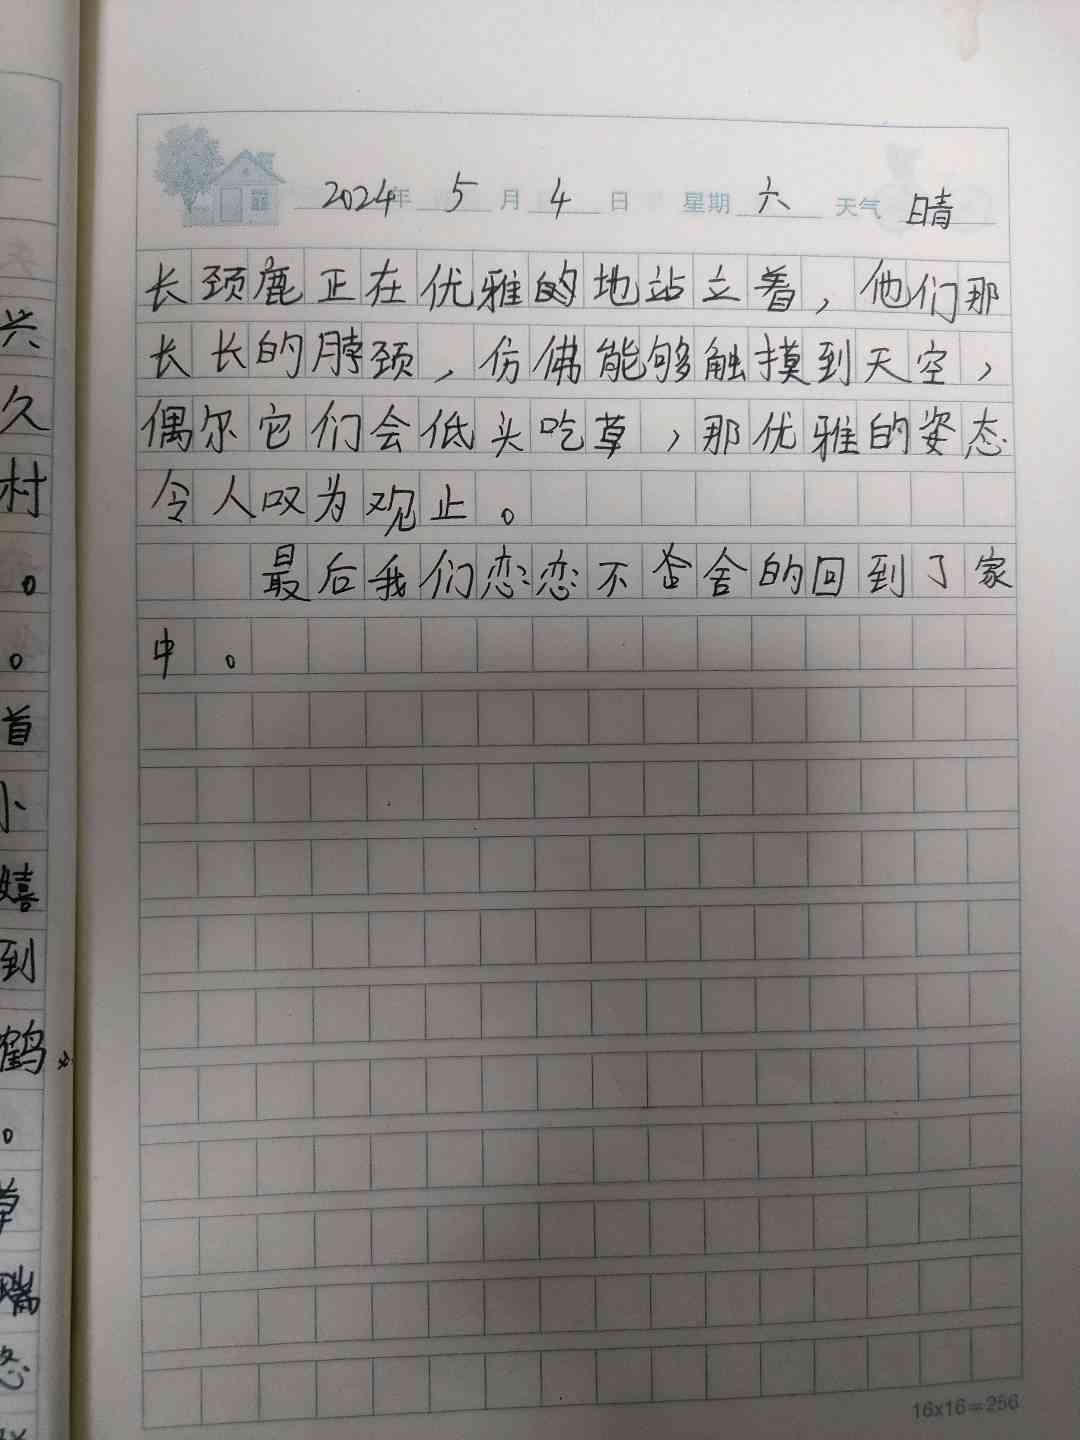 2024年 5月 4日 星期 六 天气 晴
长颈鹿正在优雅的地站立着，他们那
长长的脖颈，仿佛能够触摸到天空，
偶尔它们会低头吃草，那优雅的姿态
令人叹为观止。
最后我们恋恋不舍的回到了家
中。
16x16=256
兴
久
村
。
。
首
小
嬉
到
鹤
。
草
瑞
悠